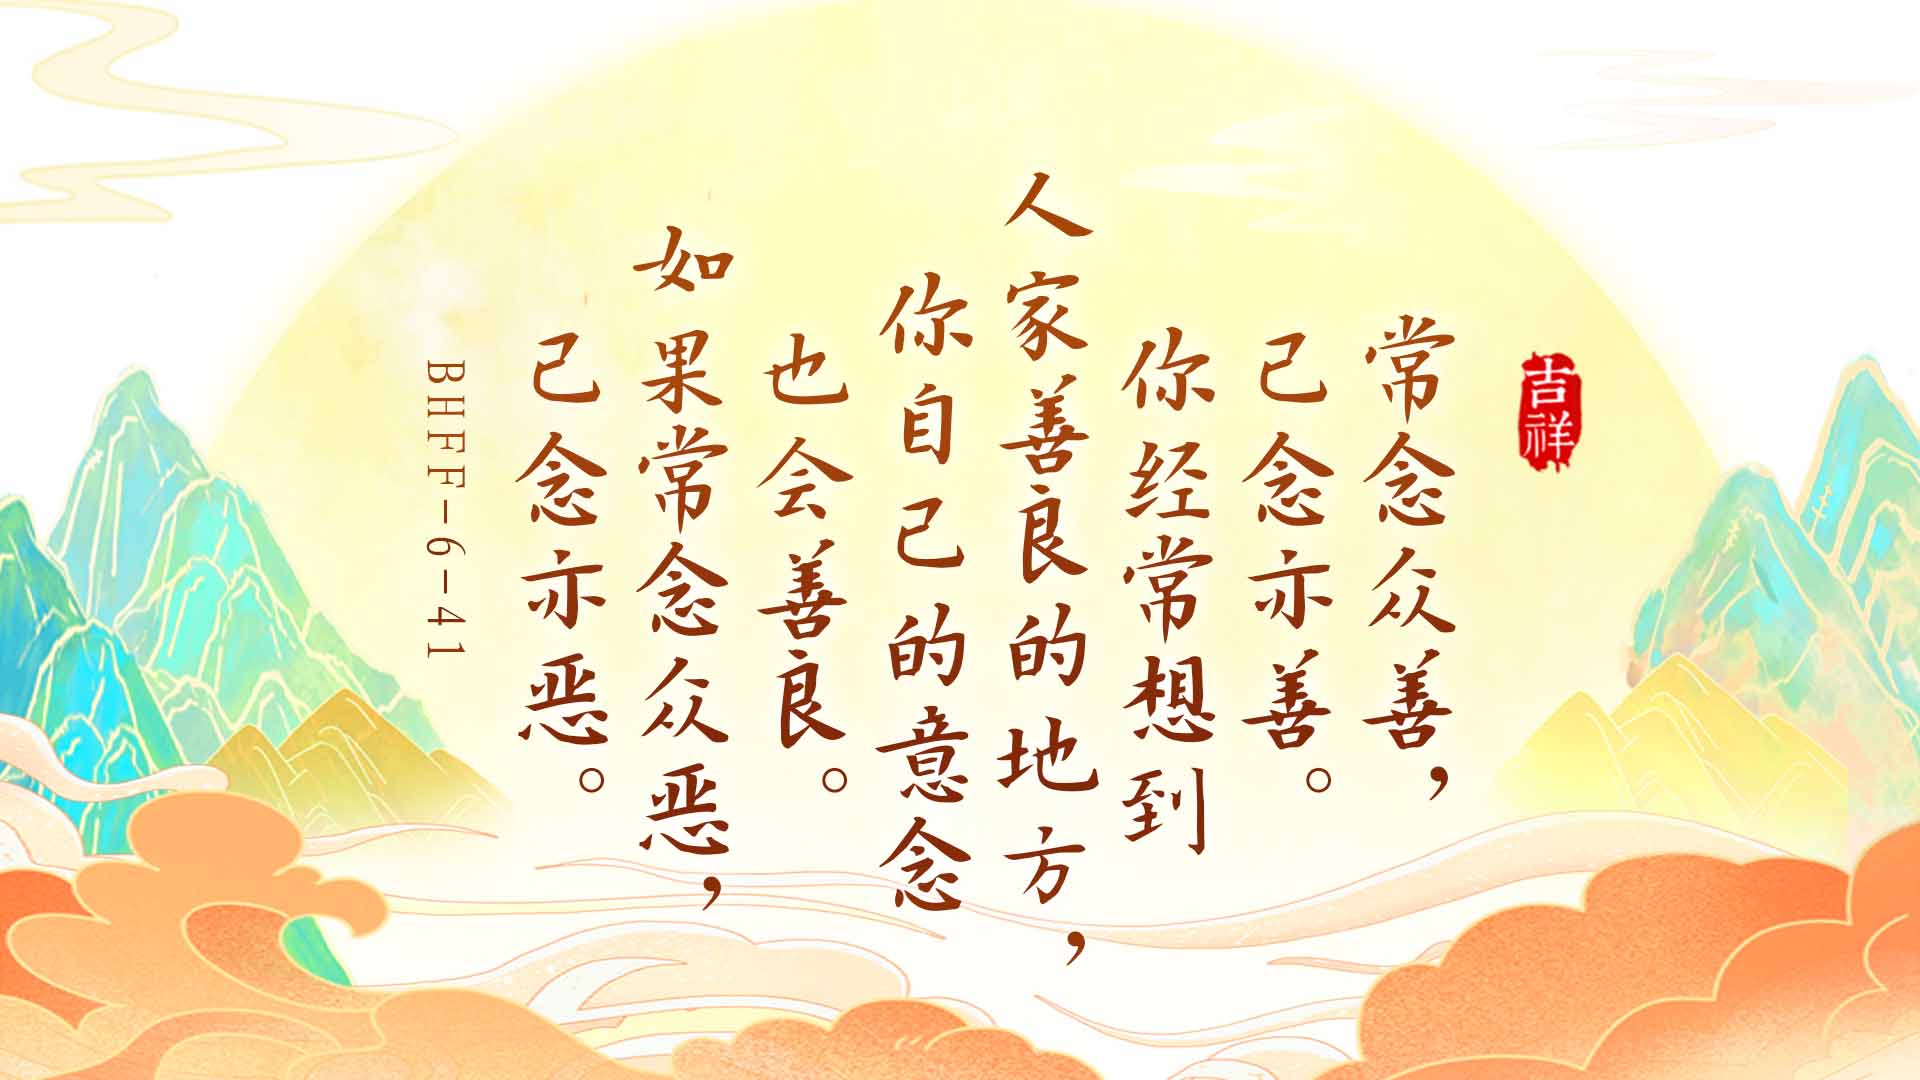 吉祥
常念众善，
己念亦善。
你经常想到
人家善良的地方，
你自己的意念
也会善良。
如果常念众恶，
己念亦恶。
BHFF-6-41